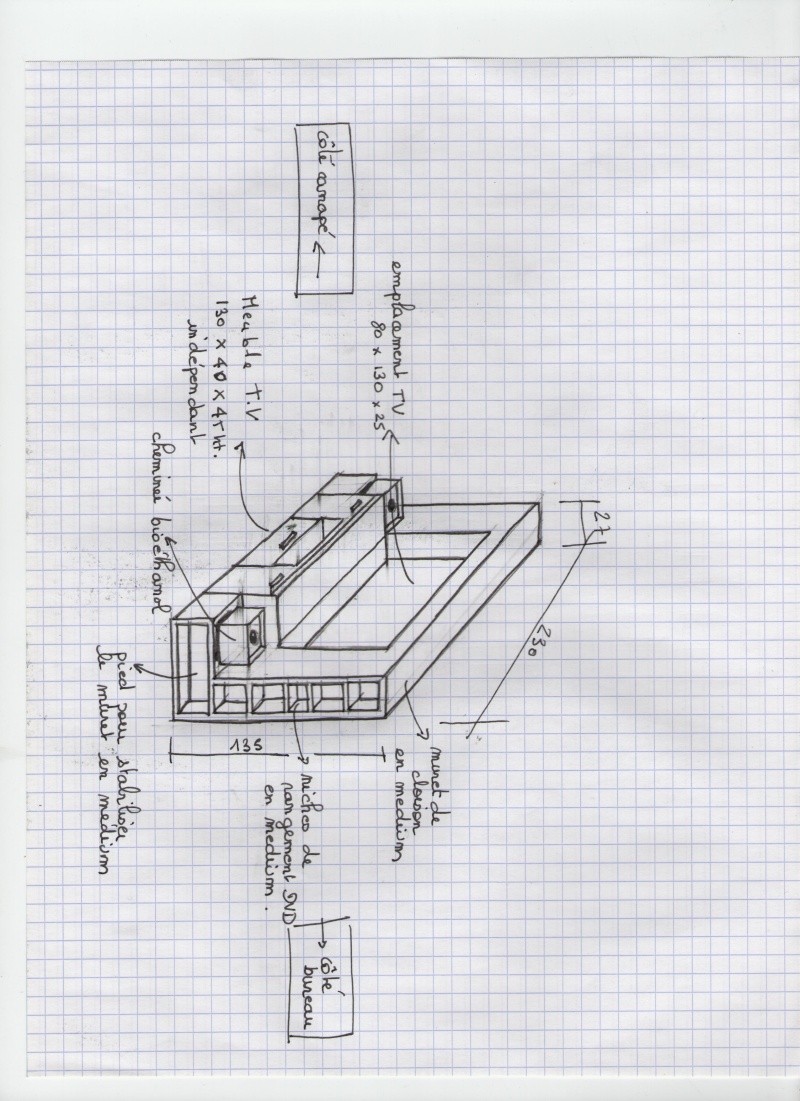 côté canapé ←
emplacement TV
80 x 130 x 25
Meuble T.V
130 x 40 x 45 ht.
indépendant
cheminée bioéthanol
pied pour stabiliser
le muret en médium
135
niches de
rangement DVD
en medium.
muret de
cloison
en medium
27
230
→ côté
bureau